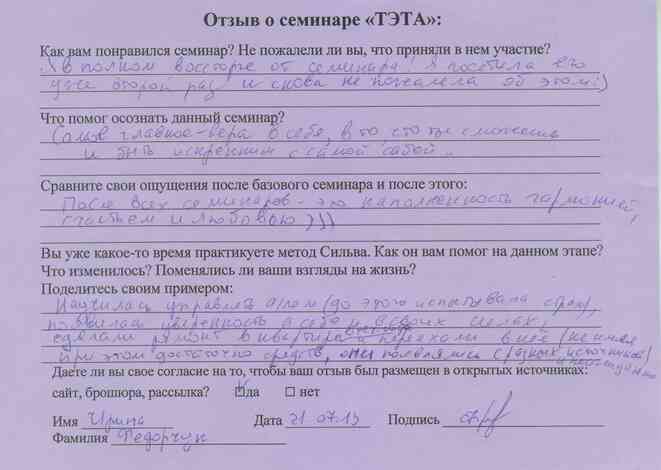 Отзыв о семинаре «ТЭТА»:
Как вам понравился семинар? Не пожалели ли вы, что приняли в нем участие?
в полном восторге от семинара! Я посетила его
уже второй раз и снова не пожалела об этом:)
Что помог осознать данный семинар?
Самое главное - вера в себя, в то, что ты сможешь
и быть искренним с самой собой..
Сравните свои ощущения после базового семинара и после этого:
После всех семинаров - это наполненность гармонией,
счастьем и любовью)))
Вы уже какое-то время практикуете метод Сильва. Как он вам помог на данном этапе?
Что изменилось? Поменялись ли ваши взгляды на жизнь?
Поделитесь своим примером:
Научилась управлять (до этого испытывала страх),
появилась уверенность в себе и своих силах,
сделали ремонт в квартире и переехали в неё (не имея
при этом достаточно средств, они появлялись с разных источников)
Даете ли вы свое согласие на то, чтобы ваш отзыв был размещен в открытых источниках:
сайт, брошюра, рассылка? ☑да ☐ нет
Имя Ирина Дата 21.07.13 Подпись
Фамилия Федорчук